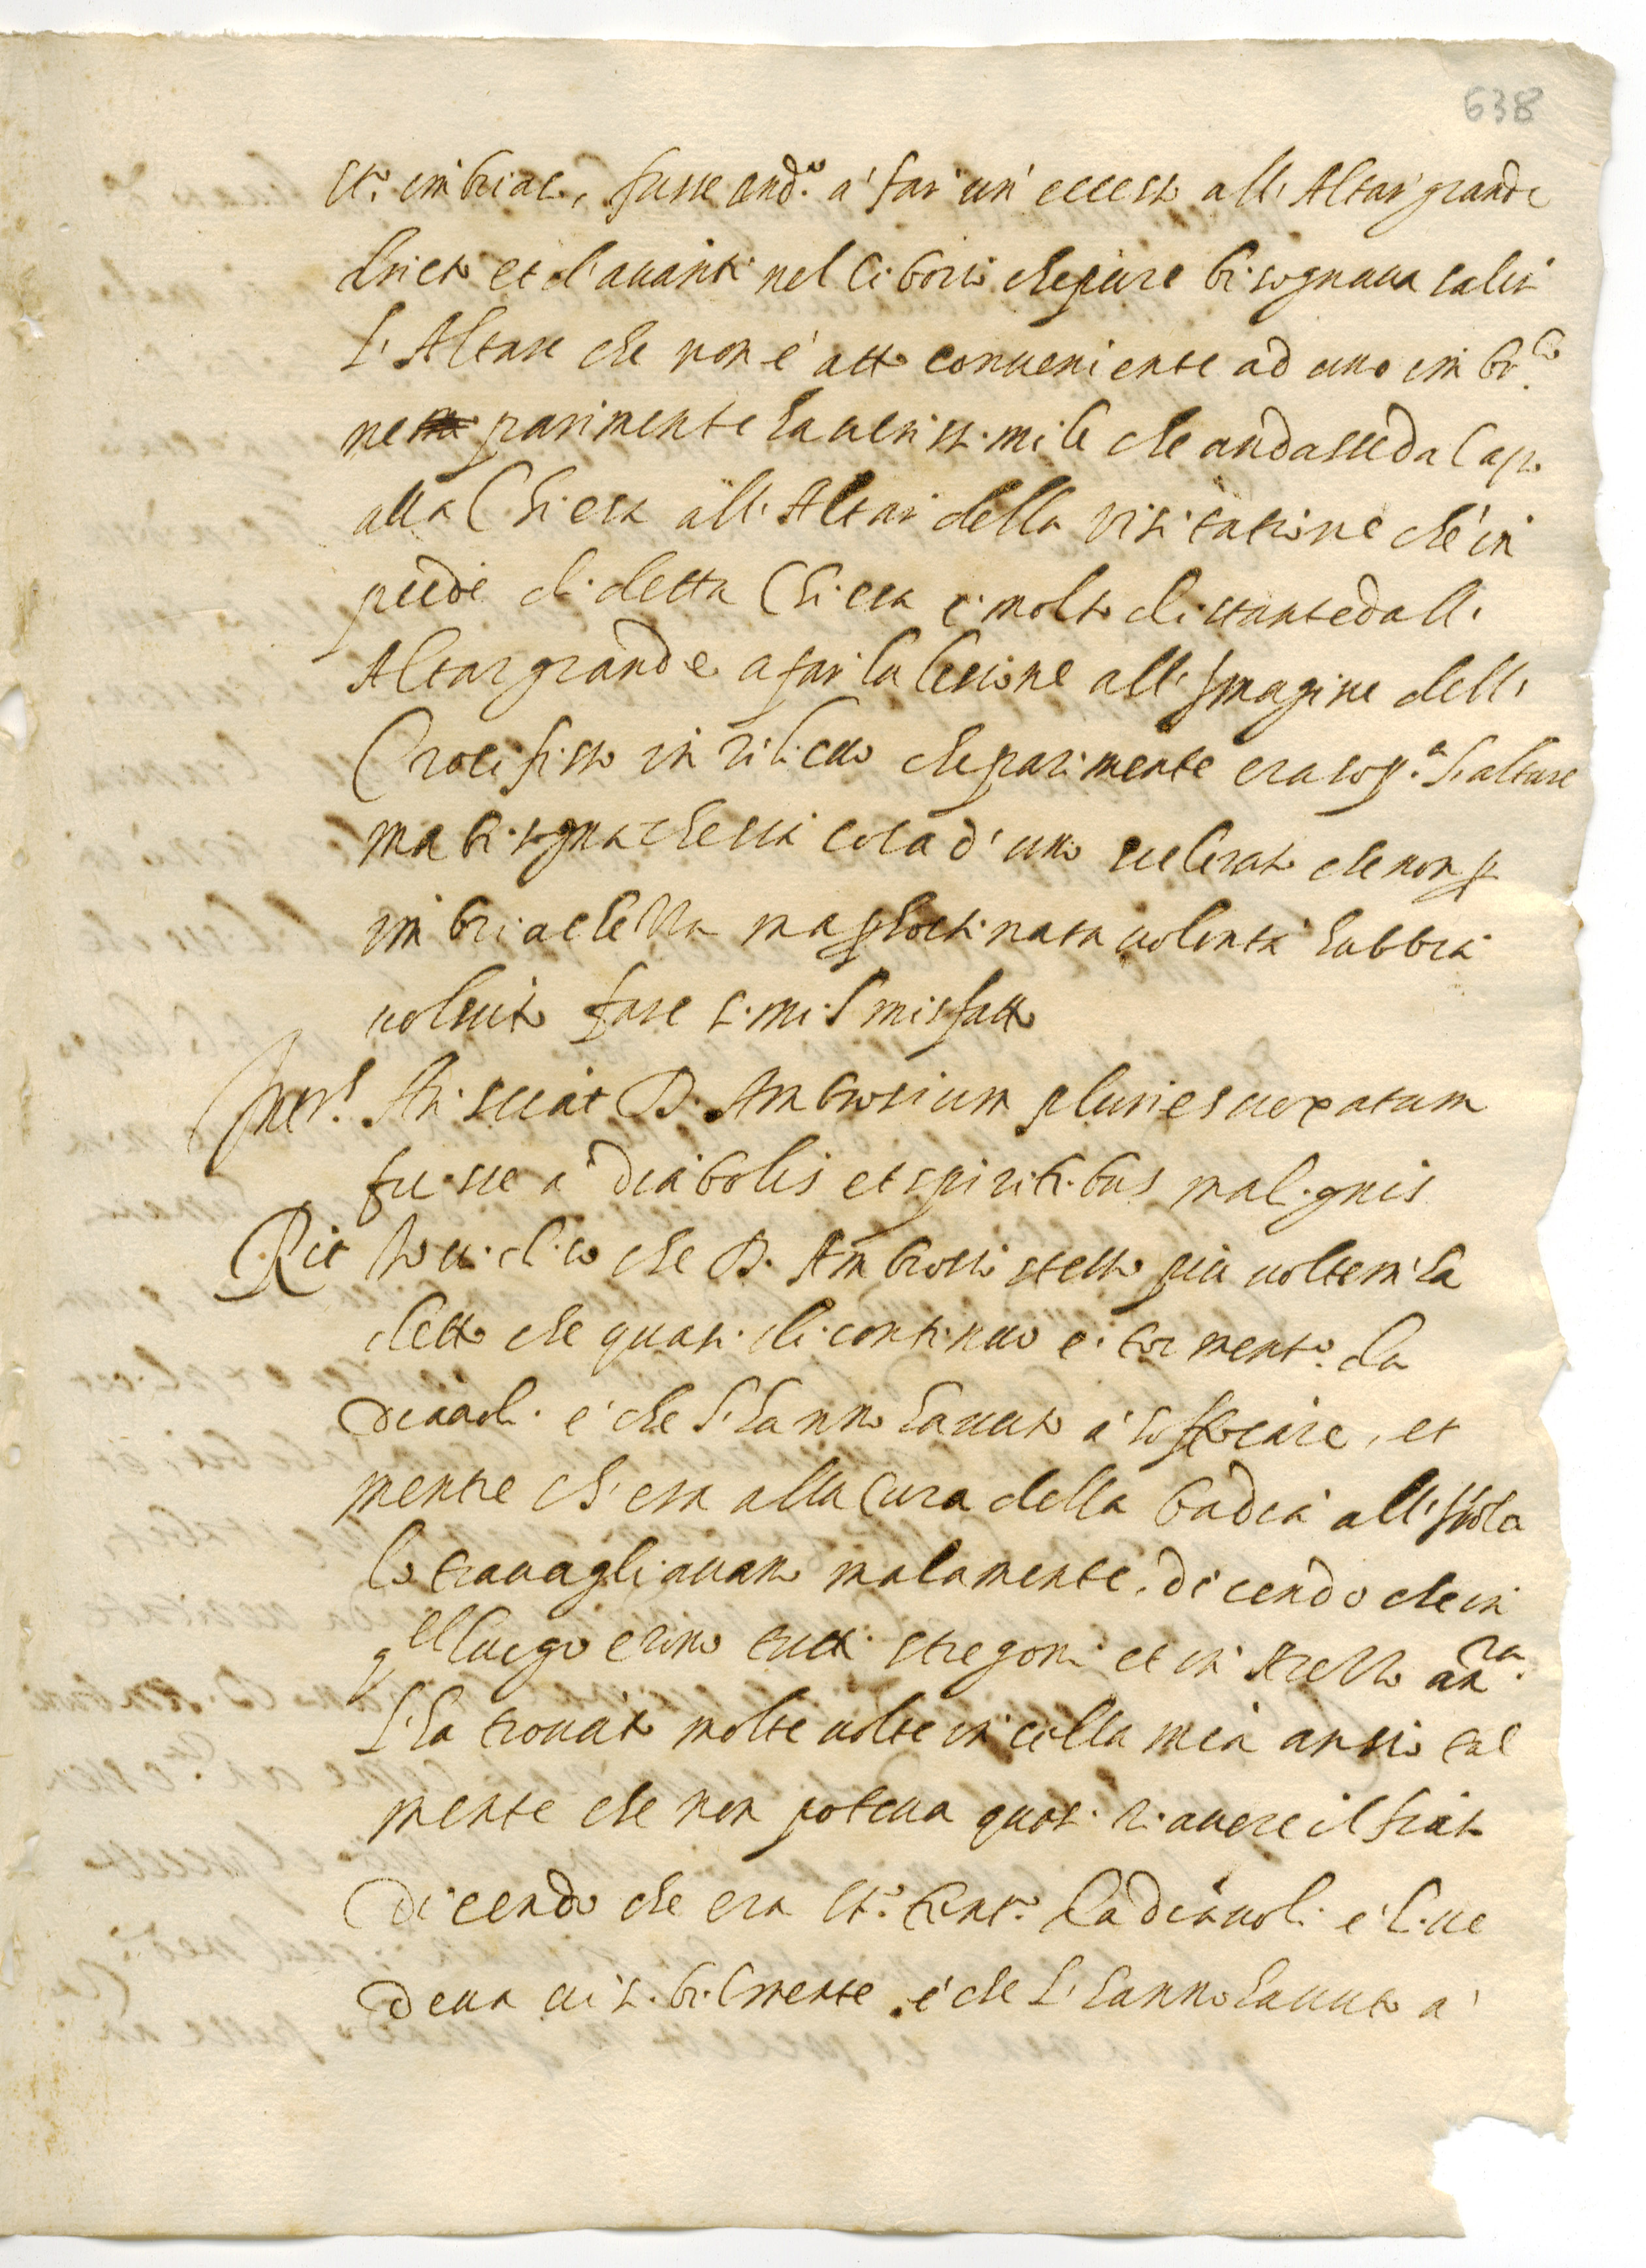 638
st.o imbriac., fusse and.o a' far un' eccesso all' Altar grande
drieto et d'auanti nel Ciborio che pure bisognaua salir
l' Altare che non e' atto conueniente ad uno imbr.co
ne parimente ha uerissimile che andasse da Cap.
alla Chiesa all' Altar della Visitatione che in
piede di detta Chiesa e' molto distante dall'
Altar grande a far la lesione all' Imagine dell'
Crocifisso in rilieuo che parimente era sop.a l' altare
ma bisogna che sia cosa d' uno scelerato che non p
imbriachezza ma p hostinata uolontà habbia
uoluto fare simil misfatto
Inter.s An sciat D. Ambrosium pluries uexatum
fuisse a' diabolis et spiritibus malignis
Rit Io ui dico che D. Ambrosio stesso più uolte m' ha
detto che quasi di continuo e' torment.o da
Diauoli e' che l' hanno hauuto a' soffocare, et
mentre ch' era alla Cura della badia all' Isola
lo trauagliauano malamente, dicendo che in
q.el luogo erano tutti stregoni et in Arezzo an.ra
l' ho trouato molte uolte in cella mia ansio tal
mente che non poteua quasi riauere il fiato
dicendo che era st.o tent.o da diauoli e' li ue
deua uisibilmente e' che l' hanno hauuto a'